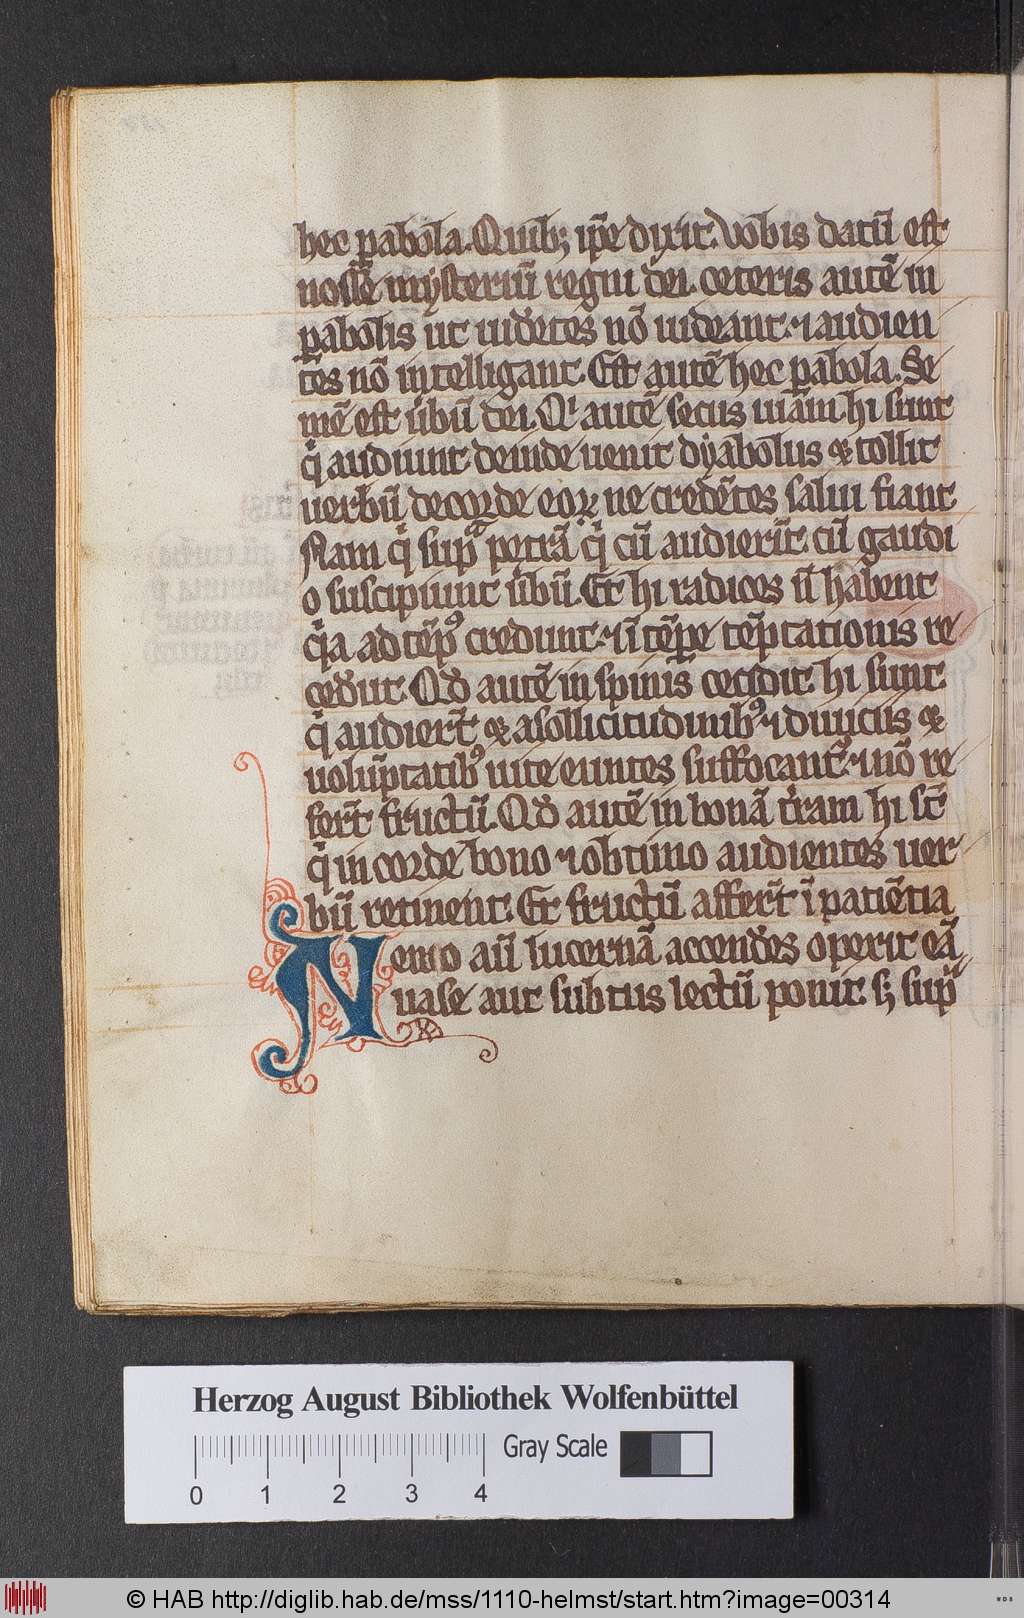 hec ꝑabola. Quibꝫ ip̄e dixit. Vobis datū est
nosse mysteriū regni dei. ceteris autē in
ꝑabolis ut uidētes nō uideant. ⁊ audien
tes nō intelligant. Est autē hec ꝑabola. Se
mē est ūbū dei. Qͥ autē secus uiam. hi sunt
qͥ audiunt. deinde uenit dyabolus & tollit
uerbū de corde eoꝝ ne credētes salui fiant
Nam qͥ supᵃ petrā qͥ cū audierīt. cū gaudi
o suscipiunt ūbū. Et hi radices n̄ habent
qͥa ad tēpꝰ credunt. ⁊ ī tēꝑe tēptationis re
cedūt. Qd autē in spinis cecidit. hi sunt
qͥ audiert̄ & a sollicitudinibꝰ ⁊ diuiciis &
uolūptatibꝰ uite euntes suffocantᷣ. ⁊ nō re
fert̄ fructū. Qd autē in bonā t̄ram hi st̄
qͥ in corde bono ⁊ obtimo audientes uer
bū retinent. Et fructū affert̄ ī patiētia
Nemo aū lucernā accendēs operit eā
uase aut subtus lectū ponit. sꝫ sup̄
Herzog August Bibliothek Wolfenbüttel
Gray Scale
0 1 2 3 4
© HAB http://diglib.hab.de/mss/1110-helmst/start.htm?image=00314